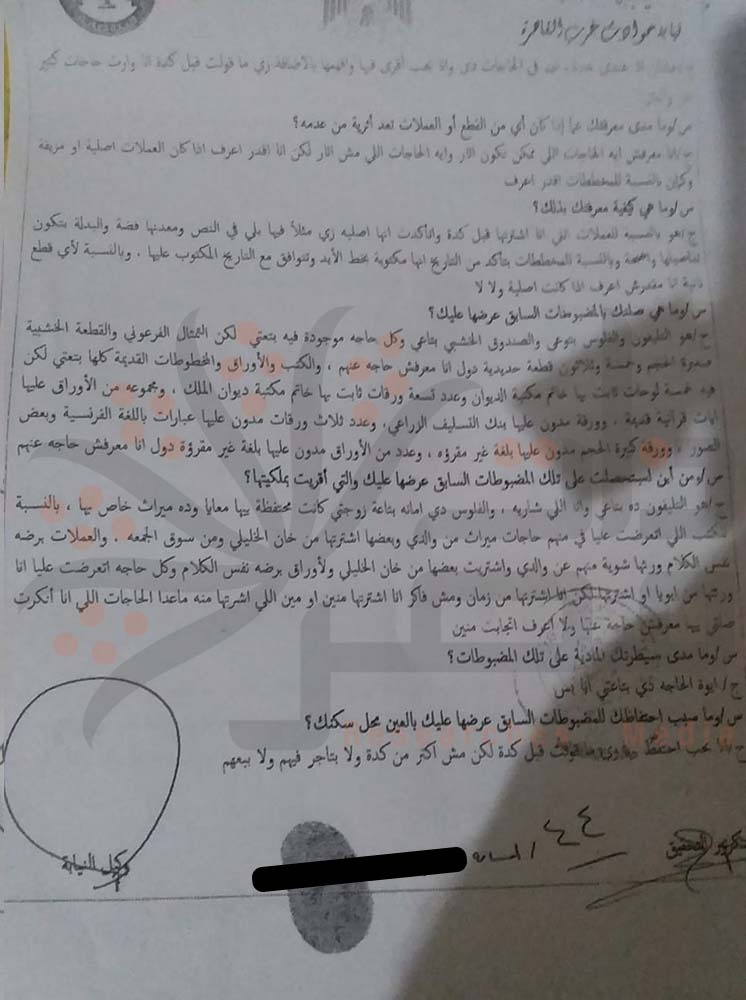 نيابة حوادث غرب القاهرة
في الحاجات دي وانا بحب أقرى فيها وافهمها بالاضافة زي ما قولت قبل كدة انا وارث حاجات كتير
س/وما مدى معرفتك عما إذا كان أي من القطع أو العملات تعد أثرية من عدمه؟
ج/انا معرفش ايه الحاجات اللي ممكن تكون اثار وايه الحاجات اللي مش اثار لكن انا اقدر اعرف اذا كان العملات اصلية او مزيفة
وكمان بالنسبة للمخطوطات اقدر اعرف
س/وما هي كيفية معرفتك بذلك؟
ج/هو بالنسبة للعملات اللي انا اشترتها قبل كدة واتأكدت انها اصليه زي مثلاً فيها بلي في النص ومعدنها فضة والبدلة بتكون
تفاصيلها واضحة وبالنسبة للمخطوطات بتأكد من التاريخ انها مكتوبة بخط الأيد وتتوافق مع التاريخ المكتوب عليها . وبالنسبة لأي قطع
تانية انا مقدرش اعرف اذا كانت اصلية ولا لا
س/وما هي صلتك بالمضبوطات السابق عرضها عليك؟
ج/هو التليفون والفلوس بتوعي والصندوق الخشبي بتاعي وكل حاجه موجودة فيه بتعتي لكن التمثال الفرعوني والقطعة الخشبية
صغيرة الحجم وخمسة وثلاثون قطعة حديدية دول انا معرفش حاجه عنهم ، والكتب والأوراق والمخطوطات القديمة كلها بتعتي لكن
فيه خمسة لوحات ثابت بها خاتم مكتبة الديوان وعدد تسعة ورقات ثابت بها خاتم مكتبة ديوان الملك ، ومجموعه من الأوراق عليها
ايات قرانية قديمة ، وورقة مدون عليها بنك التسليف الزراعي، وعدد ثلاث ورقات مدون عليها عبارات باللغة الفرنسية وبعض
الصور ، وورقه كبيرة الحجم مدون عليها بلغة غير مقرؤه ، وعدد من الأوراق مدون عليها بلغة غير مقرؤة دول انا معرفش حاجه عنهم
س/ومن أين استحصلت على تلك المضبوطات السابق عرضها عليك والتي أقريت بملكيتها؟
ج/هو التليفون ده بتاعي وانا اللي شاريه ، والفلوس دي امانه بتاعة زوجتي كانت محتفظة بيها معايا وده ميراث خاص بها ، بالنسبة
للكتب اللي اتعرضت عليا في منهم حاجات ميراث من والدي وبعضها اشترتها من خان الخليلي ومن سوق الجمعه . والعملات برضه
نفس الكلام ورثها شوية منهم عن والدي واشتريت بعضها من خان الخليلي والأوراق برضه نفس الكلام وكل حاجه اتعرضت عليا انا
ورثتها من ابويا او اشترتها لكن انا اشترتها من زمان ومش فاكر انا اشترتها منين او مين اللي اشرتها منه ماعدا الحاجات اللي انا أنكرت
صلتي بيها معرفش حاجة عنها ولا اعرف اتجابت منين
س/وما مدى سيطرتك المادية على تلك المضبوطات؟
ج/ ايوة الحاجه دي بتاعتي انا بس
س/وما سبب احتفاظك للمضبوطات السابق عرضها عليك بالعين محل سكنك؟
ج/انا بحب احتفظ بيها زي ما قولت قبل كدة لكن مش اكتر من كدة ولا بتاجر فيهم ولا ببيعهم
٤٤
وكيل النيابة